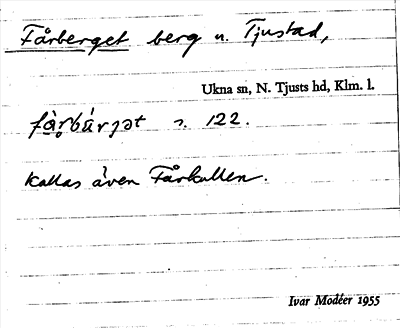 Fårberget berg n. Tjustad,
Ukna sn, N. Tjusts hd, Klm. l.
s. 122.
Kallas även Fårkullen.
Ivar Modéer 1955